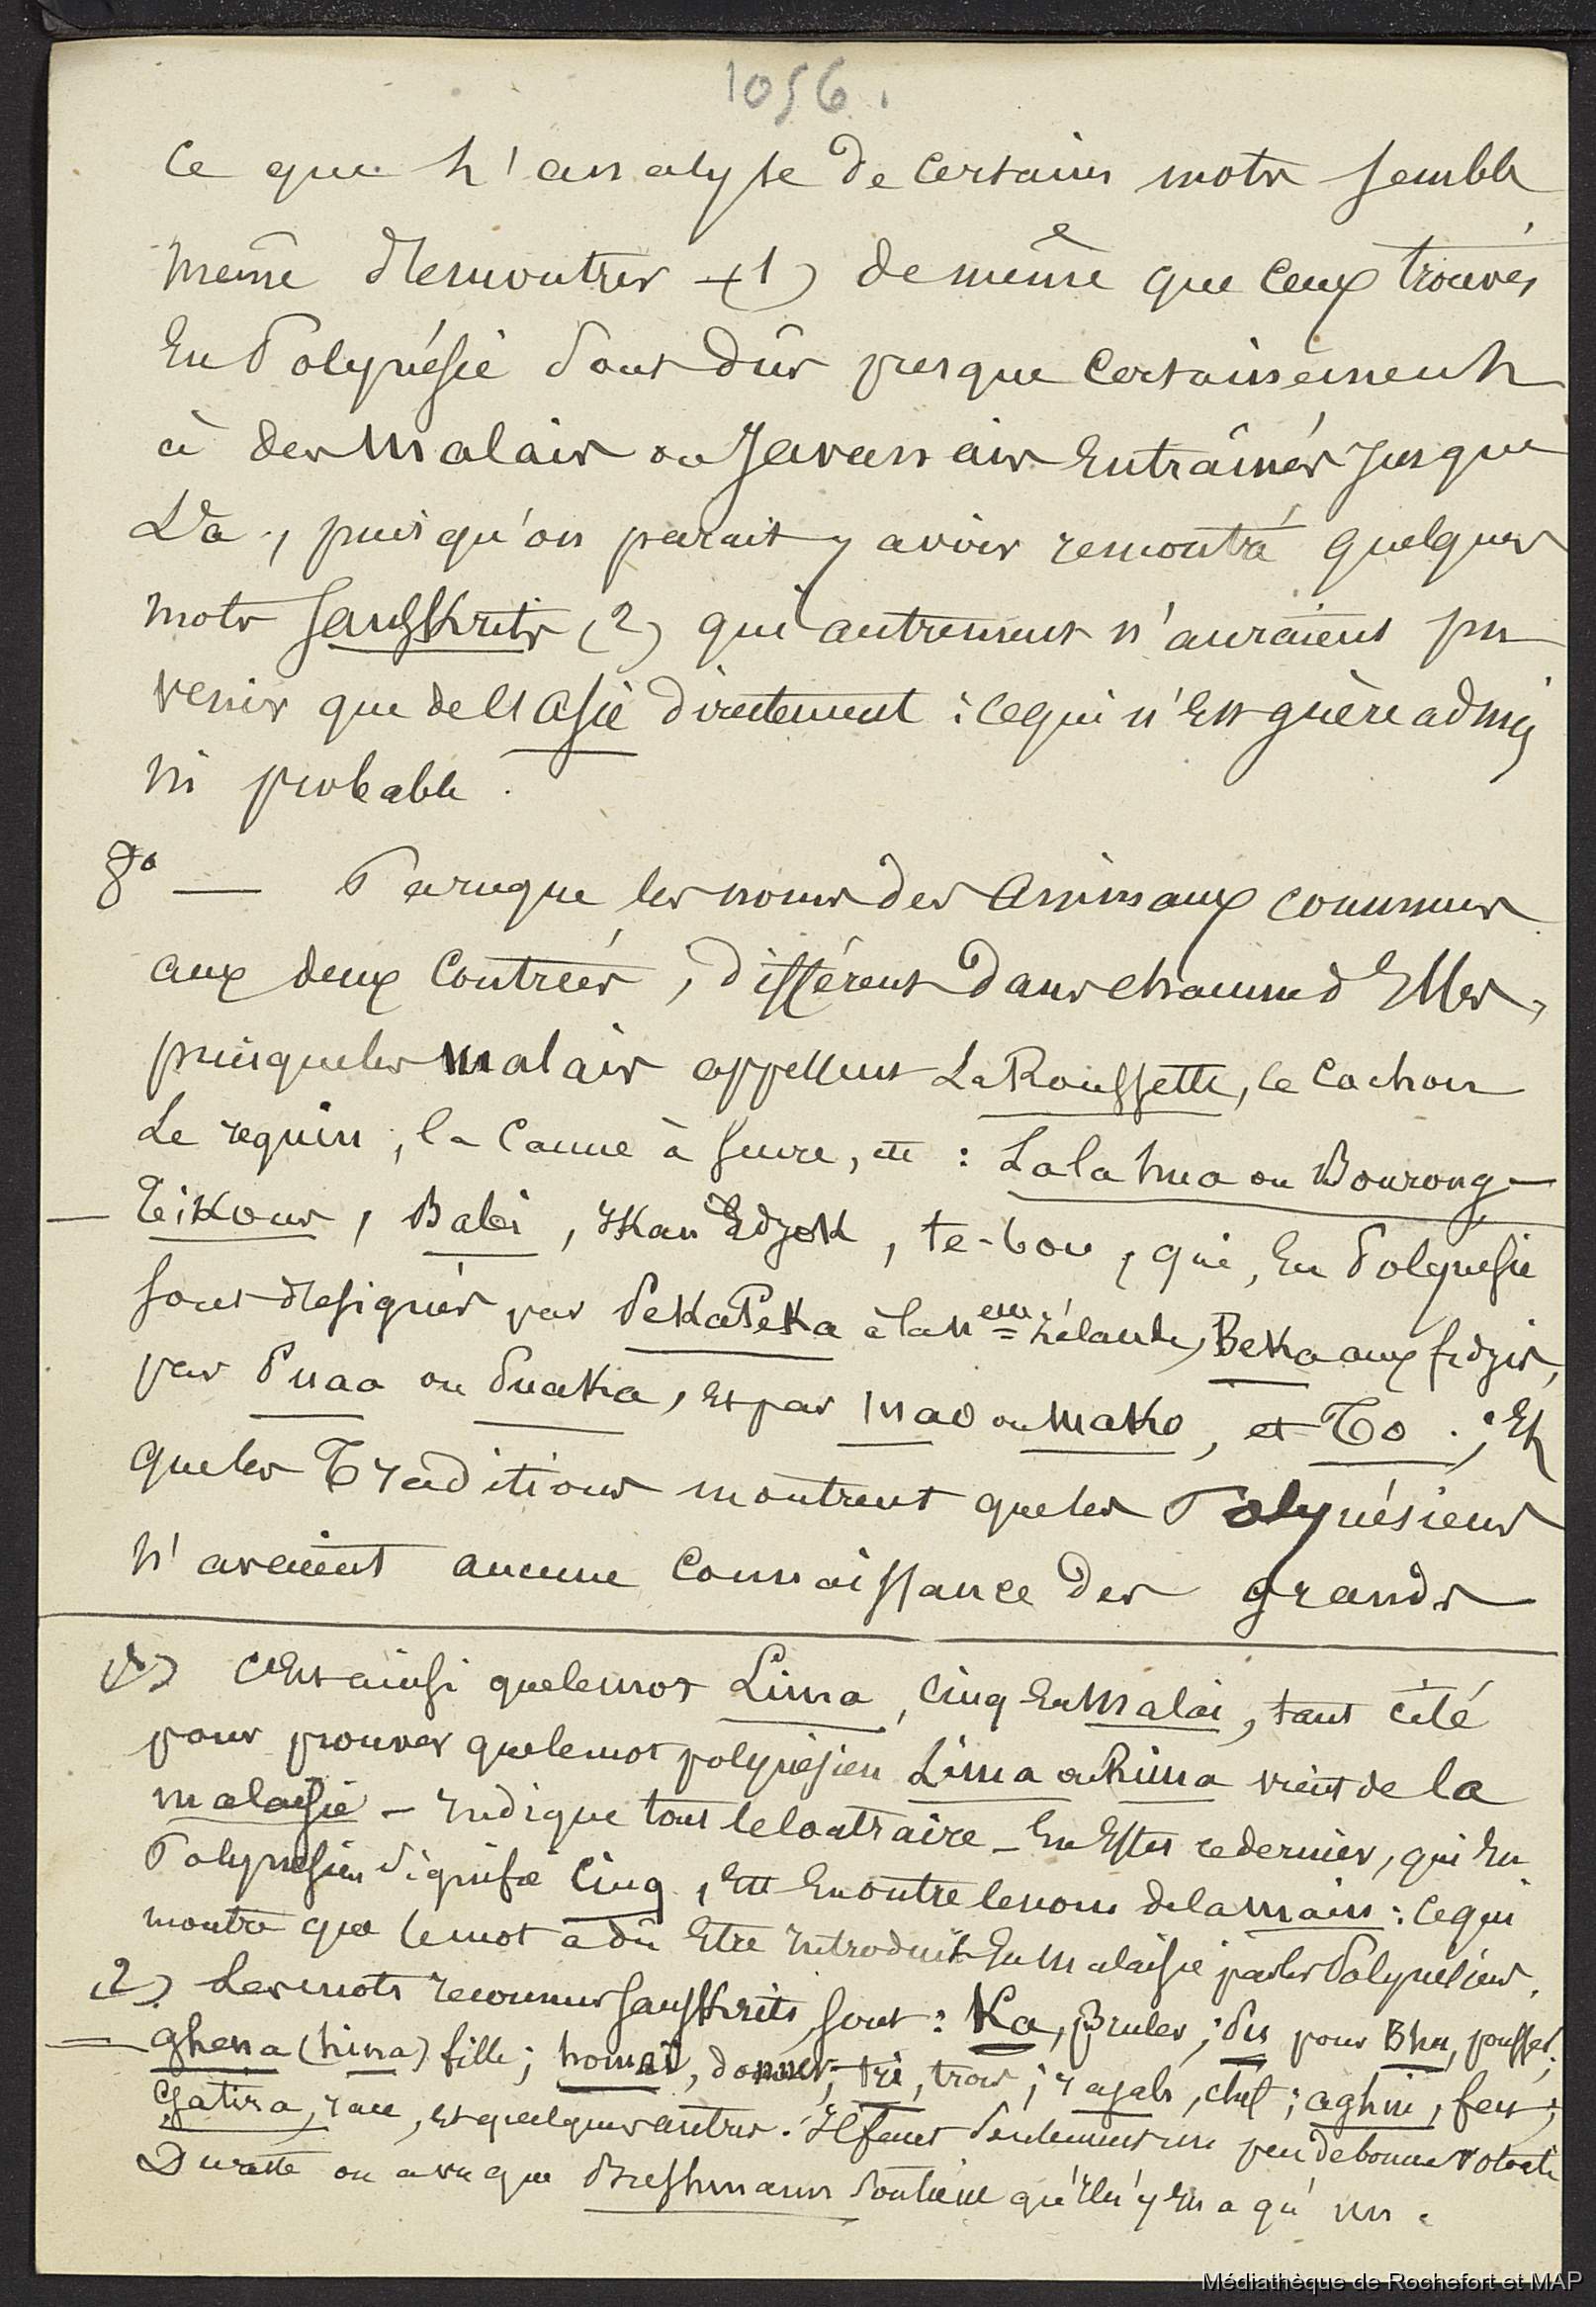 1056.
ce que l'analyse de certains mots semble
même démontrer (1) de même que ceux trouvés
En Polynésie sont dûs presque certainement
à des Malais ou Javanais Entraînés jusque
Là, puisqu'on parait y avoir remontré quelques
mots sanskrits (2) qui autrement n'auraient pu
venir que de l'asie directement : ce qui n'Est guère admis
ni probable.
8° — Parceque les noms des Animaux communs
aux deux Contrées, diffèrent dans chacune d'Elles,
puisque les Malais appellent La Roussette, le Cochon
Le requin, la Canne à sucre, etc : Lalahua ou Bourong—
— Tikous, Babi, Ikan Edjok, te-bou, qui, En Polynésie
sont désignés par PekaPeka à la Nelle Zélande, Beka aux fidjis,
par Puaa ou Puaka, Et par Mao ou Mako, et To. ; Et
que les Traditions montrent que les Polynésiens
n'avaient aucune Connaissance des grands
(1) C'Est ainsi que le mot Lima, Cinq En Malai, tant cité
pour prouver que le mot polynésien Lima ou Rima vient de la
malaisie — Indique tout le contraire — En Effet ce dernier, qui En
Polynésien signifie Cinq, Est En outre le nom de la main : ce qui
montre que le mot a dû Etre Introduit En Malaisie par les Polynésiens.
(2) Les mots reconnus sanskrits sont : Ka, Bruler ; Pu pour Bhu, pousser ;
— ghena (hina) fille ; homai, donner ; tri, trois ; rajah, chef ; aghni, feu ;
Gatira, race, Et quelques autres. Il faut seulement un peu de bonne volonté
Du reste on a vu que Bushmann soutient qu'Il n'y En a qu'un.
Médiathèque de Rochefort et MAP